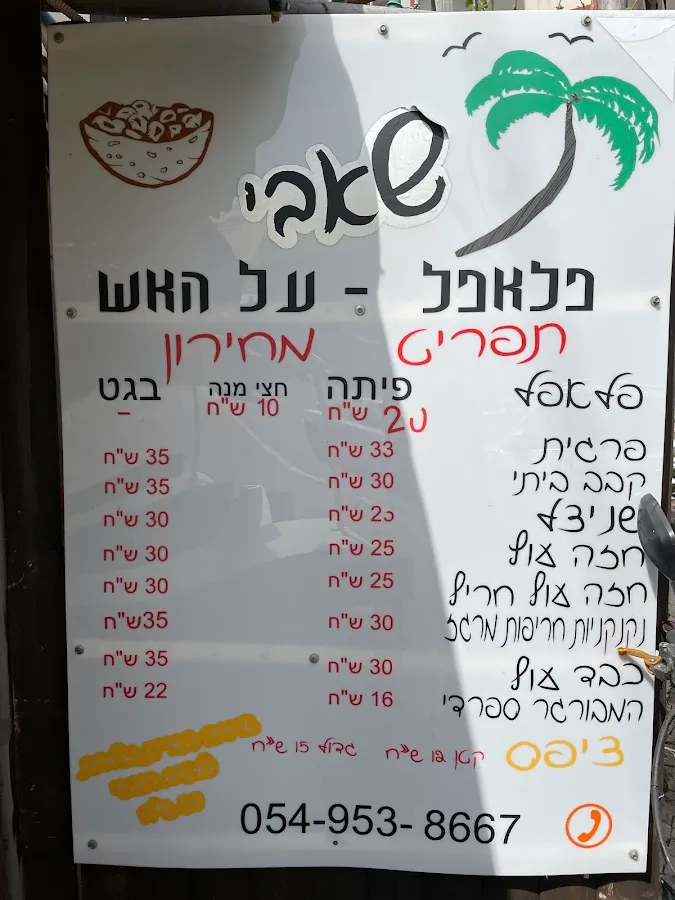 שאבי
פלאפל - על האש
תפריט מחירון
פלאפל פיתה חצי מנה בגט
20 ש"ח 10 ש"ח -
פרגית 33 ש"ח 35 ש"ח
קבב ביתי 30 ש"ח 35 ש"ח
שניצל ש"ח 30 ש"ח
חזה עוף 25 ש"ח 30 ש"ח
חזה עוף חריף 25 ש"ח 30 ש"ח
נקנקניות חריפות מרגז 30 ש"ח 35ש"ח
כבד עוף 30 ש"ח 35 ש"ח
המבורגר ספרדי 16 ש"ח 22 ש"ח
ציפס קטן 12 ש"ח גדול 15 ש"ח
054-953-8667